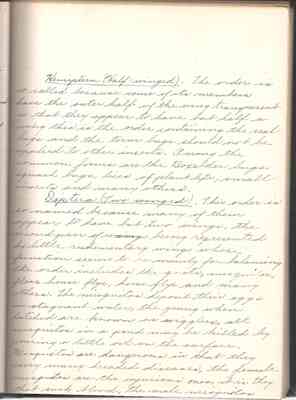 Hemiptera (Half winged). The order is
so called because some of its members
have the outer half of the wing transparent
so that they appear to have but half a
wing this is the order containing the real
bugs and the term bugs should not be
applied to other insects. Among the
common forms are the Boxelder, chage
squash bugs, lice of plant life, small
insects and many others.
Diptera (Two winged). This order is
so named because many of them
appear to have but two wings, the
second pair of wings being represented
by little rudimentary wings whose
function seems to be mainly for balancing
the order includes the gnats, mosquitoes,
fleas house flys, horse flys and many
these. The mosquitos deposit their eggs
in stagnant water, the young when
hatched are known as wigglers, all
mosquitos in a pond may be killed by
a little oil on the surface.
Mosquitos are dangerous in that they
carry many dreaded diseases, the female
mosquitos are the injurious ones, it is they
that suck blood, the male mosquitos